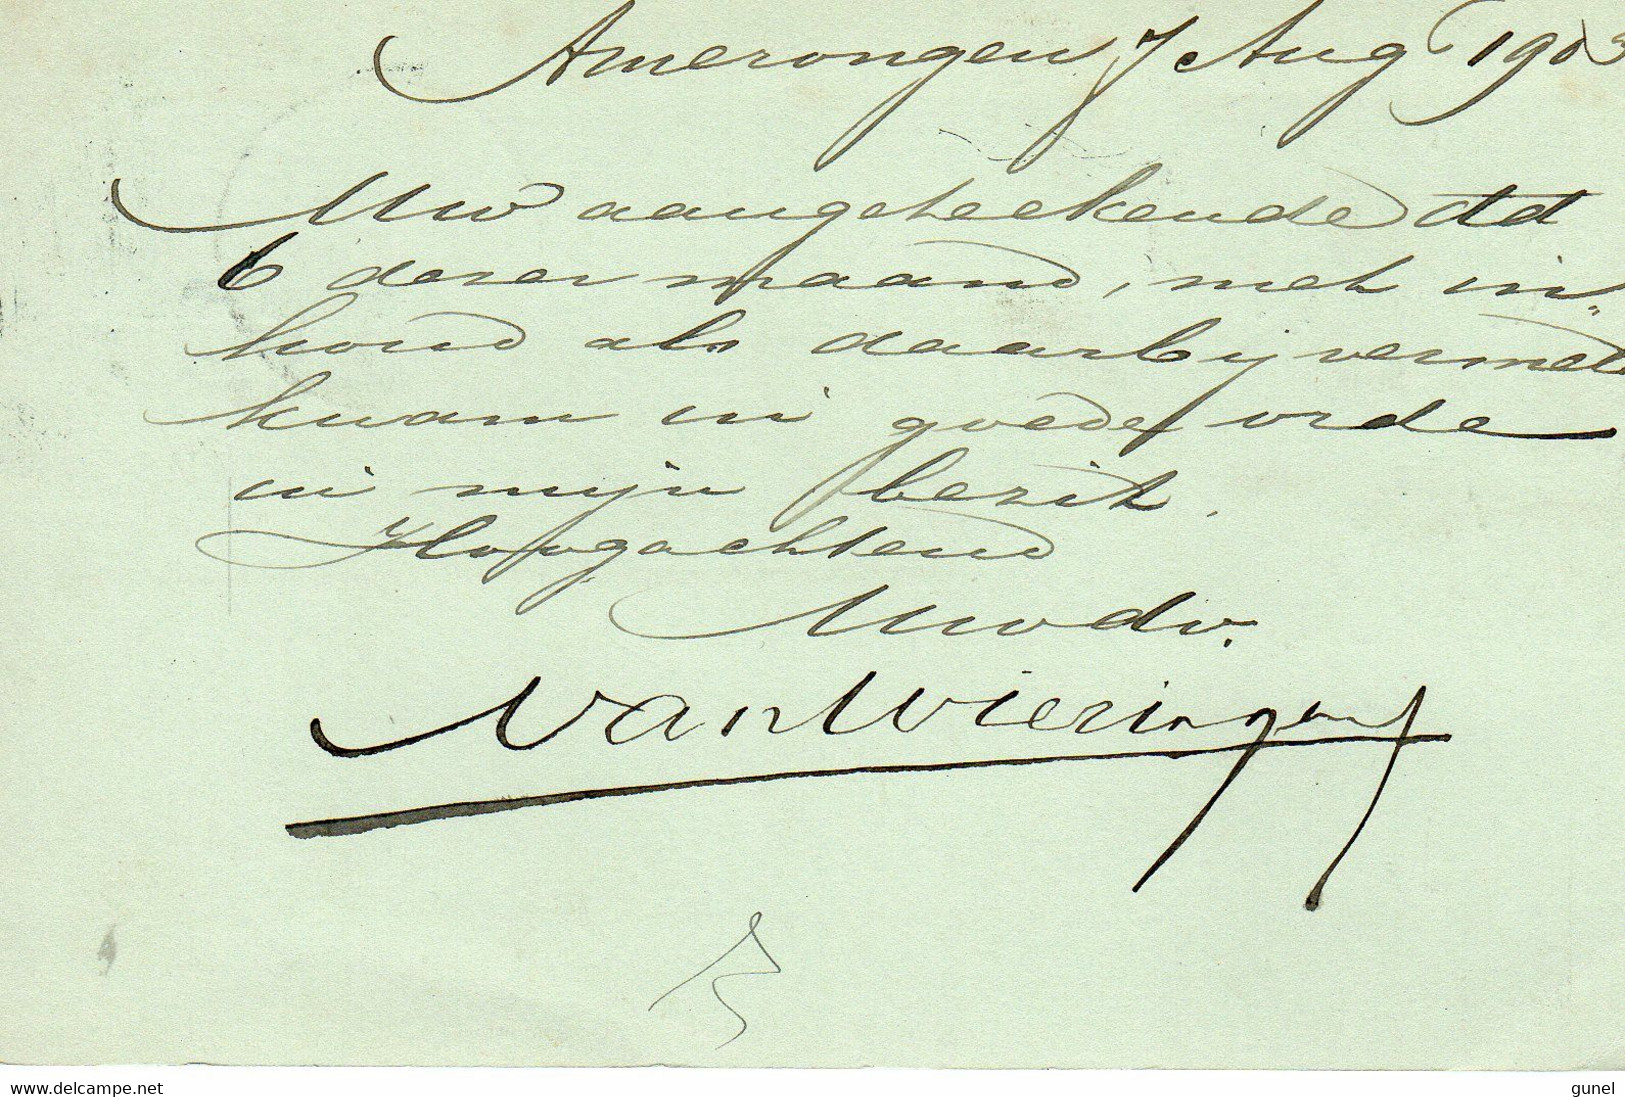 Amerongen 7 Aug 1903
Uw aangeteekende dd
6 dezer maand, met in"
houd als daarbij vermeld
kwam in goede orde
in mijn bezit.
Hoogachtend
Uwdv.
van Wieringen
www.delcampe.net
gunel